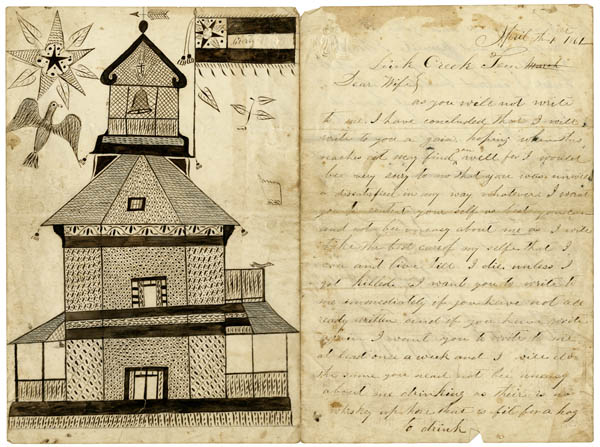 April
Creek Tenn
Dear Wife
as you will not write
to me I have concluded that I will
write to you a gain hoping when this
reaches you may find you well for I would
bee very sory to no that you was unwell
or dissatisfied in my way whatever I want
you to content your self as best you can
and not bee uneasy about me as I will
take the best care of my selfe that I
can and live till I die unless I
get killed I want you to write to
me immediately if you have not
ready written and if you have write
again I want you to write to me
at least once a week and I will
the same you need not bee uneasy
about me drinking as their is no
whiskey up here that is fit for a hog
to drink